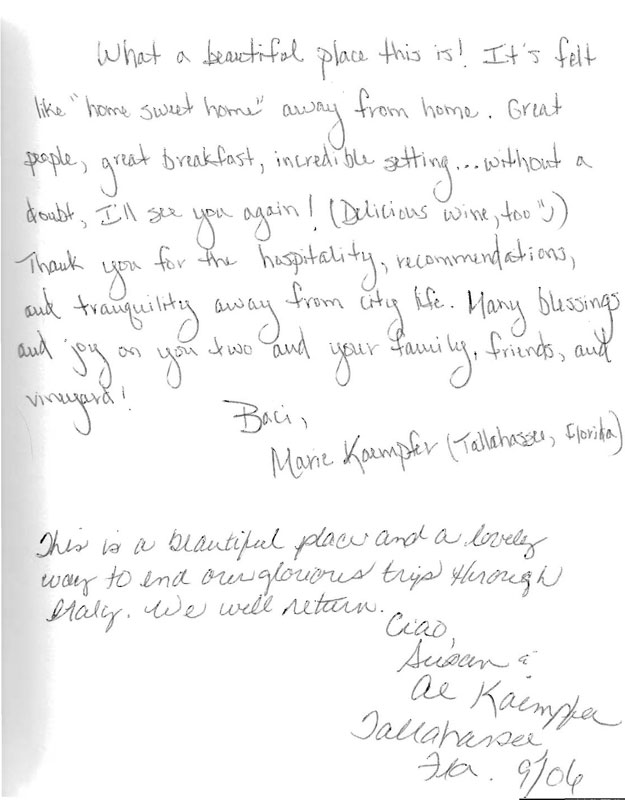 What a beautiful place this is! It's felt
like "home sweet home" away from home. Great
people, great breakfast, incredible setting...without a
doubt, I'll see you again! (Delicious wine, too :))
Thank you for the hospitality, recommendations,
and tranquility away from city life. Many blessings
and joy on you two and your family, friends, and
vineyard!
Baci,
Marie Kaempfer (Tallahassee, Florida)
This is a beautiful place and a lovely
way to end our glorious trip through
Italy. We will return.
Ciao,
Susan &
Al Kaempfer
Tallahassee
Fla. 9/06